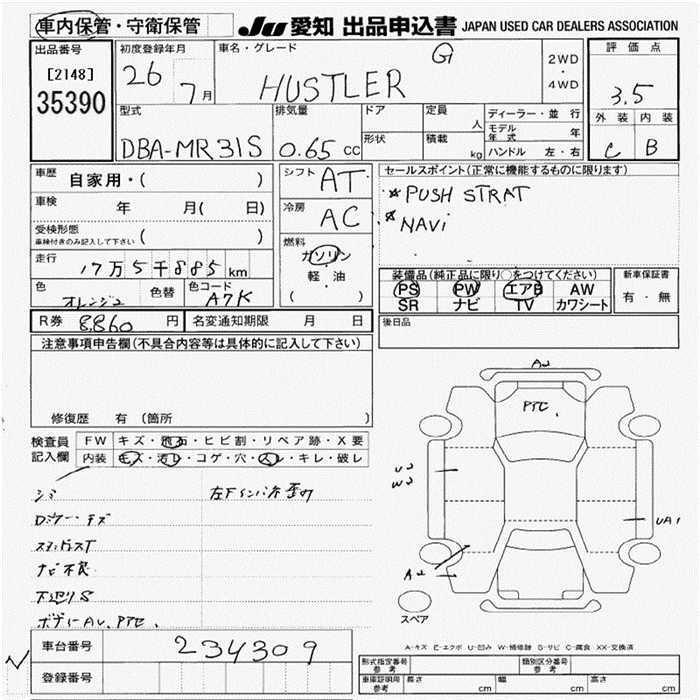 車内保管・守衛保管 JU 愛知 出品申込書 JAPAN USED CAR DEALERS ASSOCIATION
出品番号 初度登録年月 車名・グレード 2WD・4WD 評価点
[2148] 26 7月 HUSTLER G 3.5
35390
型式 排気量 ドア 定員 人 ディーラー・並行 外装 内装
モデル年式 年
DBA-MR31S 0.65 cc 形状 積載 kg ハンドル 左・右 C B
車歴 自家用・( ) シフト AT セールスポイント(正常に機能するものに限ります)
車検 年 月( 日) 冷房 AC *PUSH STRAT
受検形態 ( ) *NAVi
車検付きのみ記入して下さい
走行 17万5千885km 燃料 ガソリン 軽・油 ( )
色 オレンジ2 色替 色コード A7K
装備品(純正品に限り○をつけてください) 新車保証書
PS PW エアB AW 有・無
SR ナビ TV カワシート
R券 8,860円 名変通知期限 月 日 後日品
注意事項申告欄(不具合内容等は具体的に記入して下さい)
修復歴 有 (箇所
検査員記入欄 FW キズ・飛石・ヒビ割・リペア跡・X要
内装 キズ・汚レ・コゲ・穴・スレ・キレ・破レ
シミ
ナビ不良
下廻りS
ボディーAU、PTE、
A2
PTE,
U2
W2
UA1
A2
スペア
A-キズ E-エクボ U-凹み W-補修跡 S-サビ C-腐食 XX-交換済
車台番号 234309
登録番号
形式指定番号 参考 類別区分番号 参考
車庫証明用 参考 長さ cm 幅 cm 高さ cm